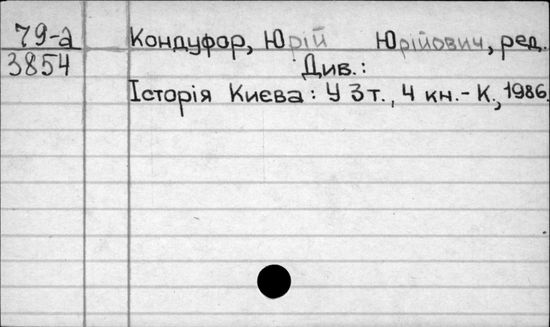 79-а
3854
Кондуфор, Юрій Юрійович, ред.
Див.:
Історія Києва: У 3т., 4 кн.-К., 1986.